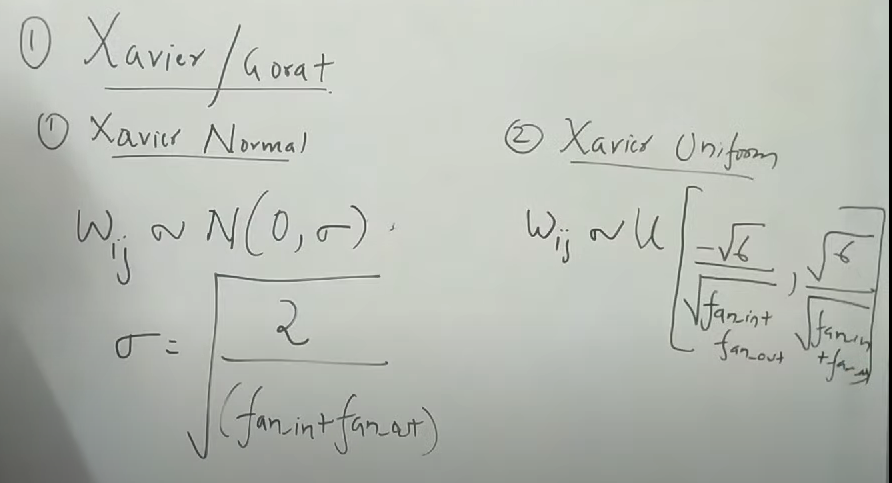 ① Xavier/Gorat
① Xavier Normal
W_ij ~ N(0, σ).
σ = √(2 / (fan_in + fan_out))
② Xavier Uniform
W_ij ~ U[-√6 / √(fan_in + fan_out), √6 / √(fan_in + fan_out)]